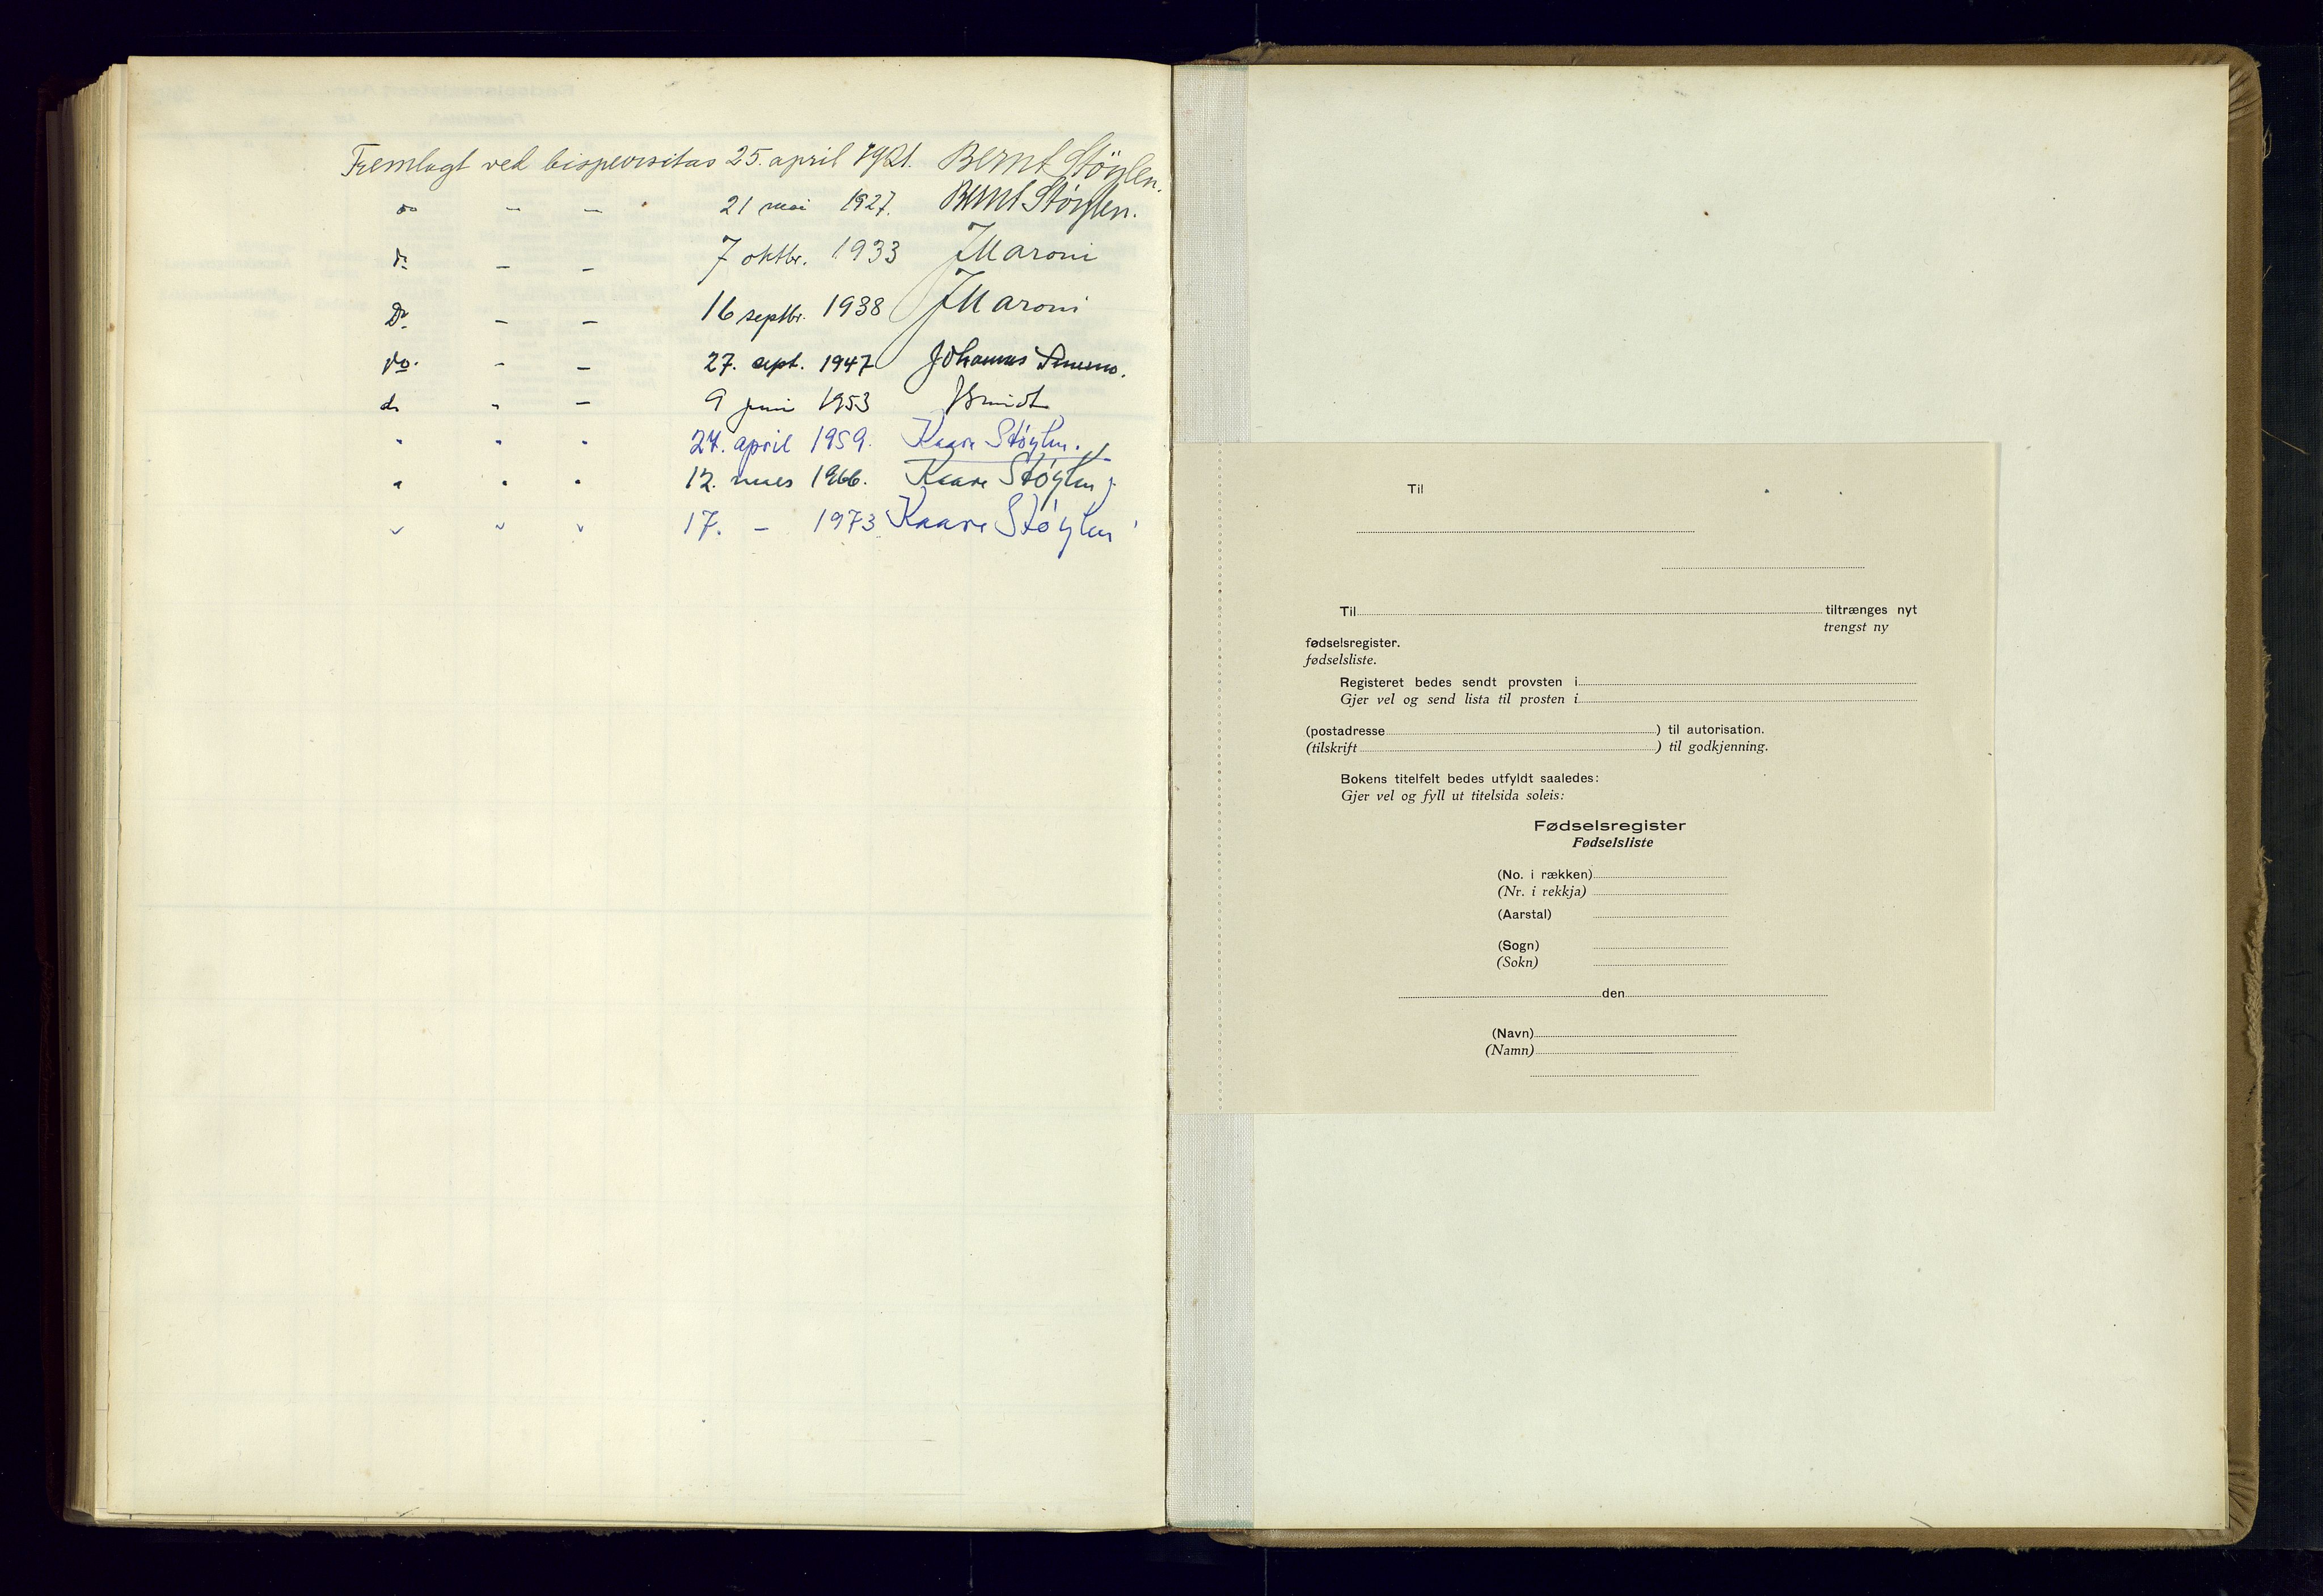 Fremlagt ved bispevisitas 25. april 1921. Bernt Støylen.
do - - 21 mai 1927. Bernt Støylen.
do - - 7 oktbr. 1933 J Maroni
Do - - 16 septbr. 1938 J Maroni
do. - - 27. sept. 1947 Johannes Smemo.
do - - 9 juni 1953 J Smidt
" " " 27. april 1959. Kaare Støylen.
" " " 12. mars 1966. Kaare Støylen
" " " 17. - 1973 Kaare Støylen
Til
Til tiltrænges nyt
trengst ny
fødselsregister.
fødselsliste.
Registeret bedes sendt provsten i
Gjer vel og send lista til prosten i
(postadresse ) til autorisation.
(tilskrift ) til godkjenning.
Bokens titelfelt bedes utfyldt saaledes:
Gjer vel og fyll ut titelsida soleis:
Fødselsregister
Fødselsliste
(No. i rækken)
(Nr. i rekkja)
(Aarstal)
(Sogn)
(Sokn)
den
(Navn)
(Namn)